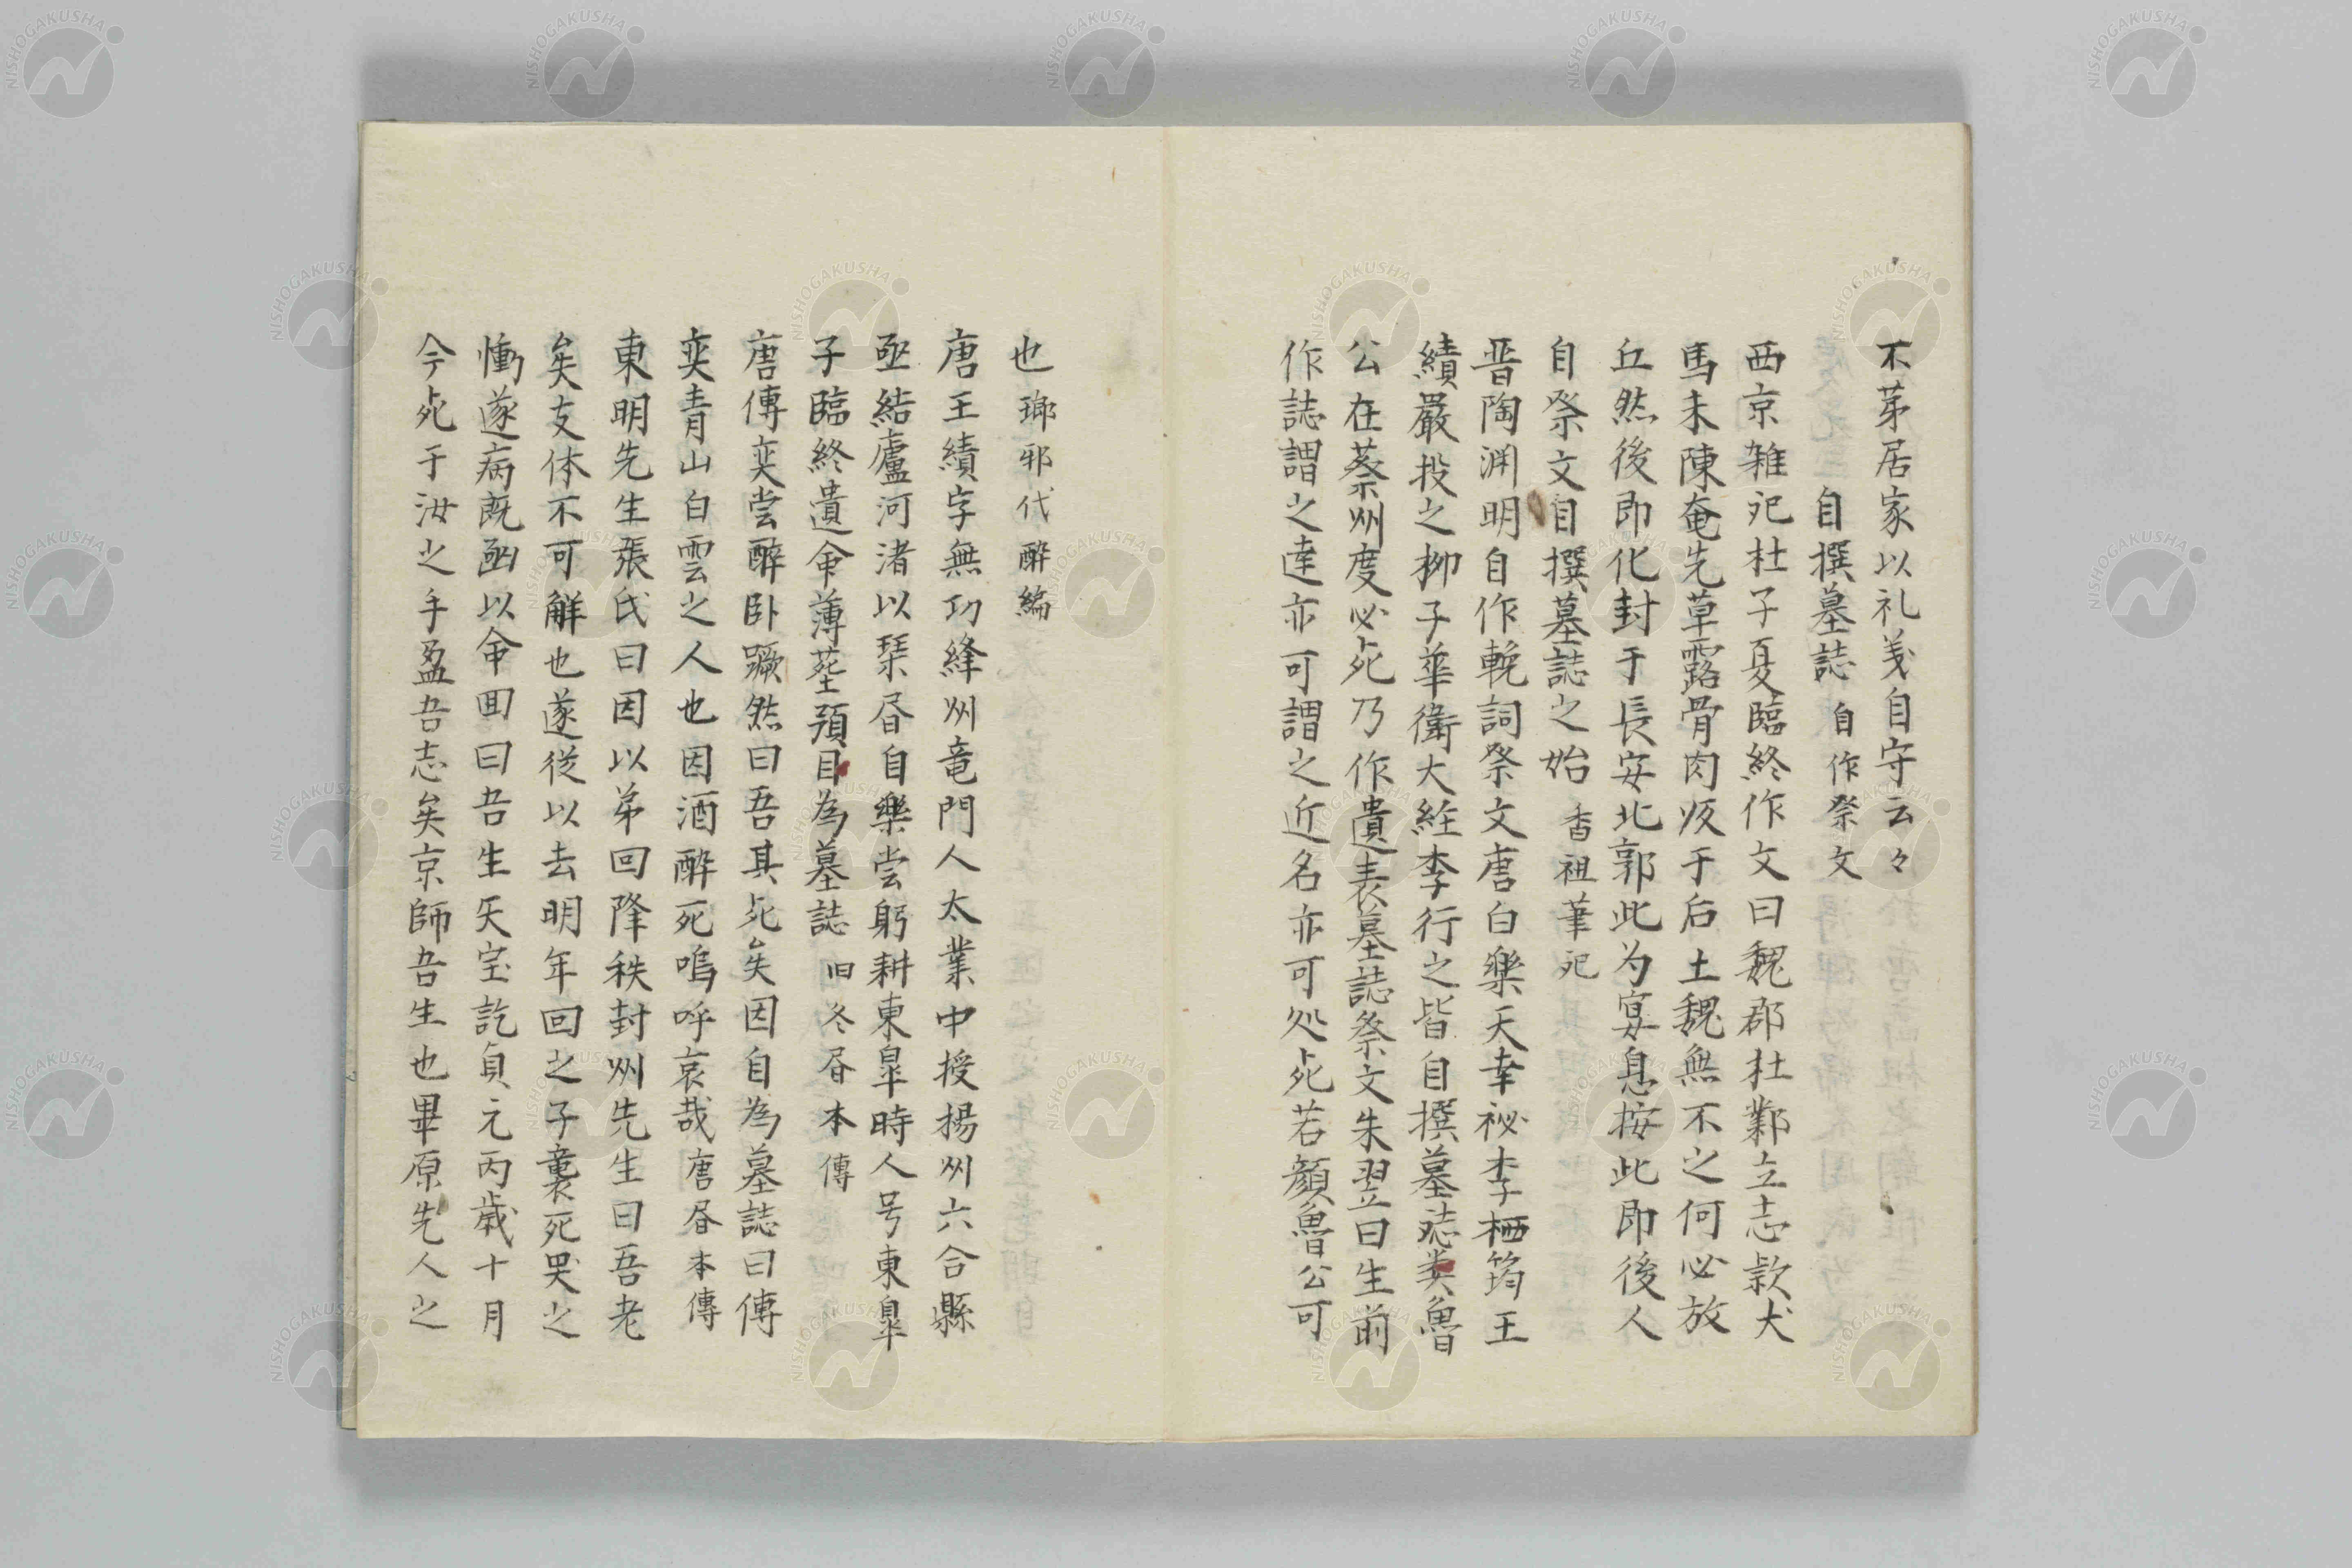 不苐居家以礼義自守云々
自撰墓誌 自作祭文
西京雑记杜子夏臨終作文曰魏郡杜鄴立志歀犬
馬未陳奄先草露骨肉皈于后土魏無不之何必放
丘然後即化封于長安北郭此为宴息按此即後人
自祭文自撰墓誌之始 香祖筆记
晋陶渊明自作輓詞祭文唐白樂天幸祕李栖筠王
績嚴挍之柳子華衛大経李行之皆自撰墓誌类魯
公在蔡州度必死乃作遺表墓誌祭文朱翌曰生前
作誌謂之達亦可謂之近名亦可処死若顔魯公可
也 瑯邪代醉編
唐王績字無功絳州竜門人太業中授揚州六合縣
丞結廬河渚以琹昏自樂尝躬耕東皐時人号東皐
子臨終遺命薄葬預自為墓誌 旧冬昏本傳
唐傅奕尝醉卧蹶然曰吾其死矣因自為墓誌曰傅
奕青山白雲之人也因酒醉死嗚呼哀哉 唐昏本傳
東明先生張氏曰因以弟回降秩封州先生曰吾老
矣支体不可解也遂從以去明年回之子襄死哭之
慟遂病既凾以命囬曰吾生天宝訖貞元丙歳十月
今死于汝之手盈吾志矣京師吾生也畢原先人之